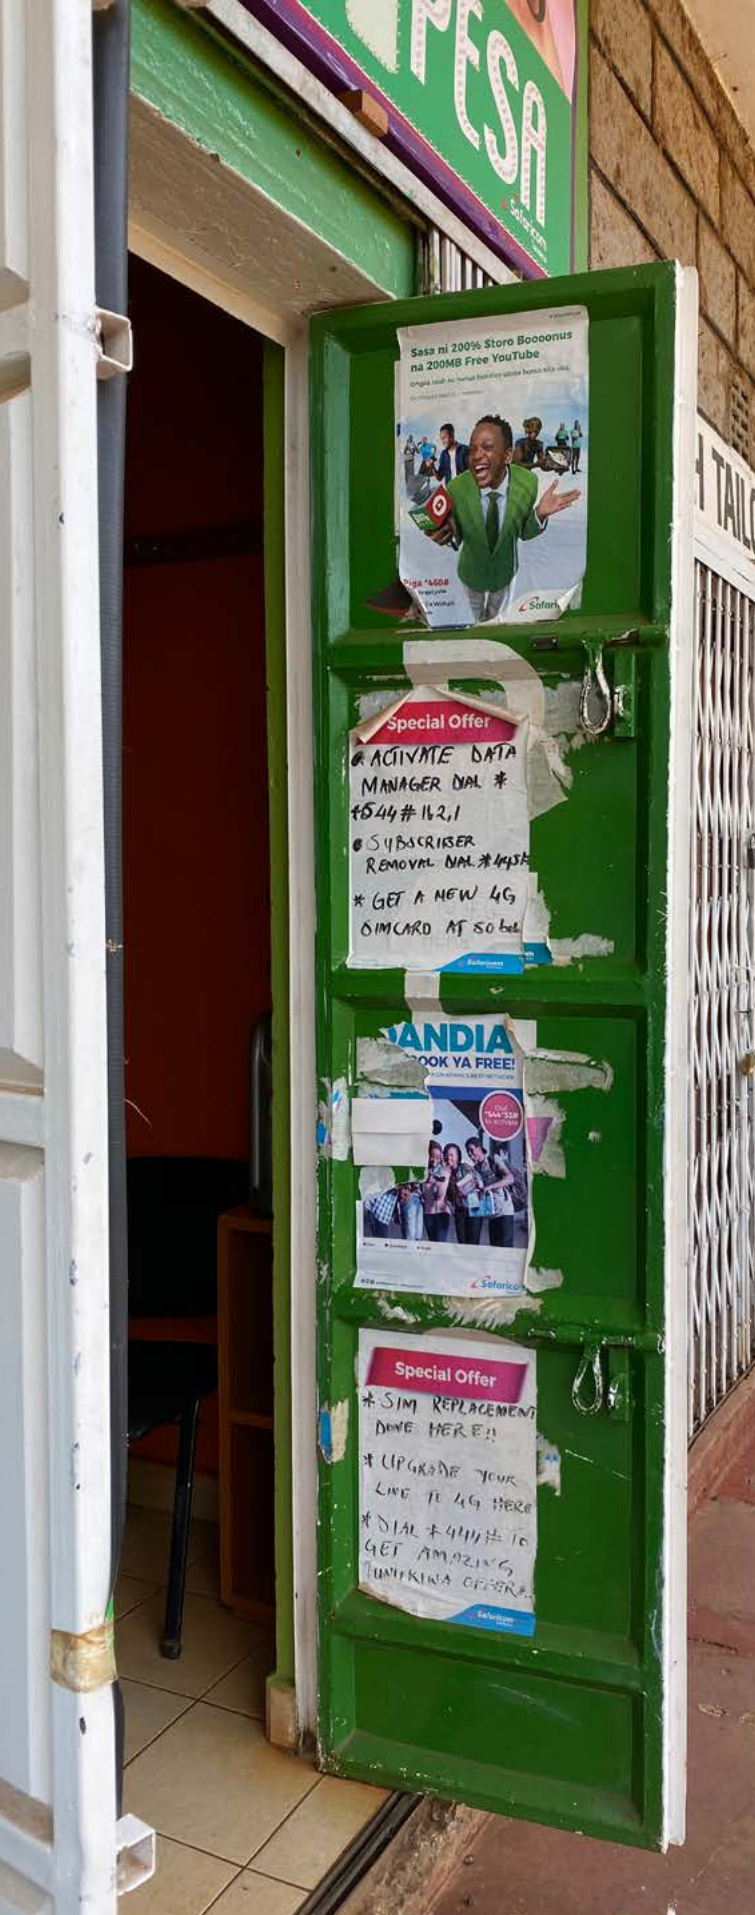 PESA
Safaricom
Sasa ni 200% Storo Boooonus
na 200MB Free YouTube
Piga *460#
Safari
H TAIL
Special Offer
ACTIVATE DATA
MANAGER DIAL *
544#
SUBSCRIBER
REMOVAL DIAL
* GET A NEW 4G
SIMCARD AT 50 bob
Safaricom
ANDIA
OOK YA FREE!
Dial
*544*55#
Safarico
Special Offer
* SIM REPLACEMENT
DONE HERE!!
* UPGRADE YOUR
LINE TO 4G HERE
* DIAL *444# TO
GET AMAZING
TUNUKIWA OFFERS..
Safaricom